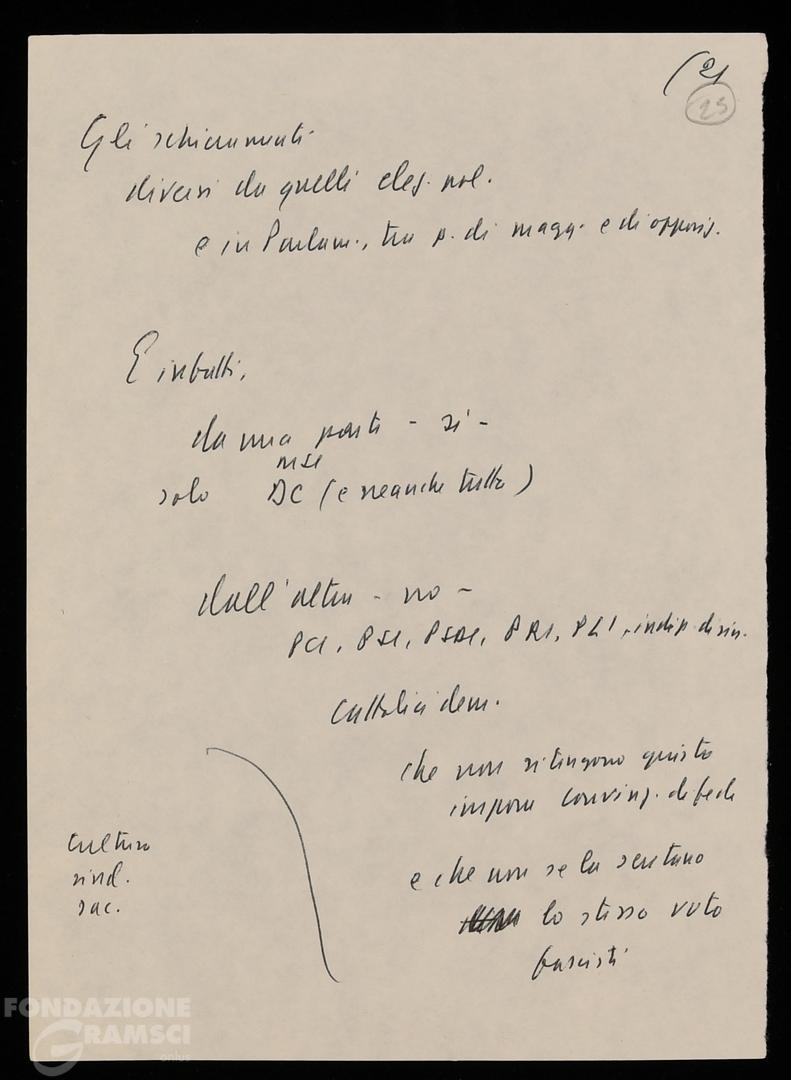 (2
25
Gli schieramenti
diversi da quelli eleg. pol.
e in Parlam., tra p. di magg. e di opposiz.
E infatti,
da una parte - sì -
MSI
solo DC (e neanche tutta)
dall'altra - no -
PCI, PSI, PSDI, PRI, PLI, indip. di sin.
Cattolici dem.
che non ritengono giusto
imporre convinz. di fede
e che non se la sentono
lo stesso voto
fascisti
cultura
sind.
sac.
FONDAZIONE
GRAMSCI
onlus